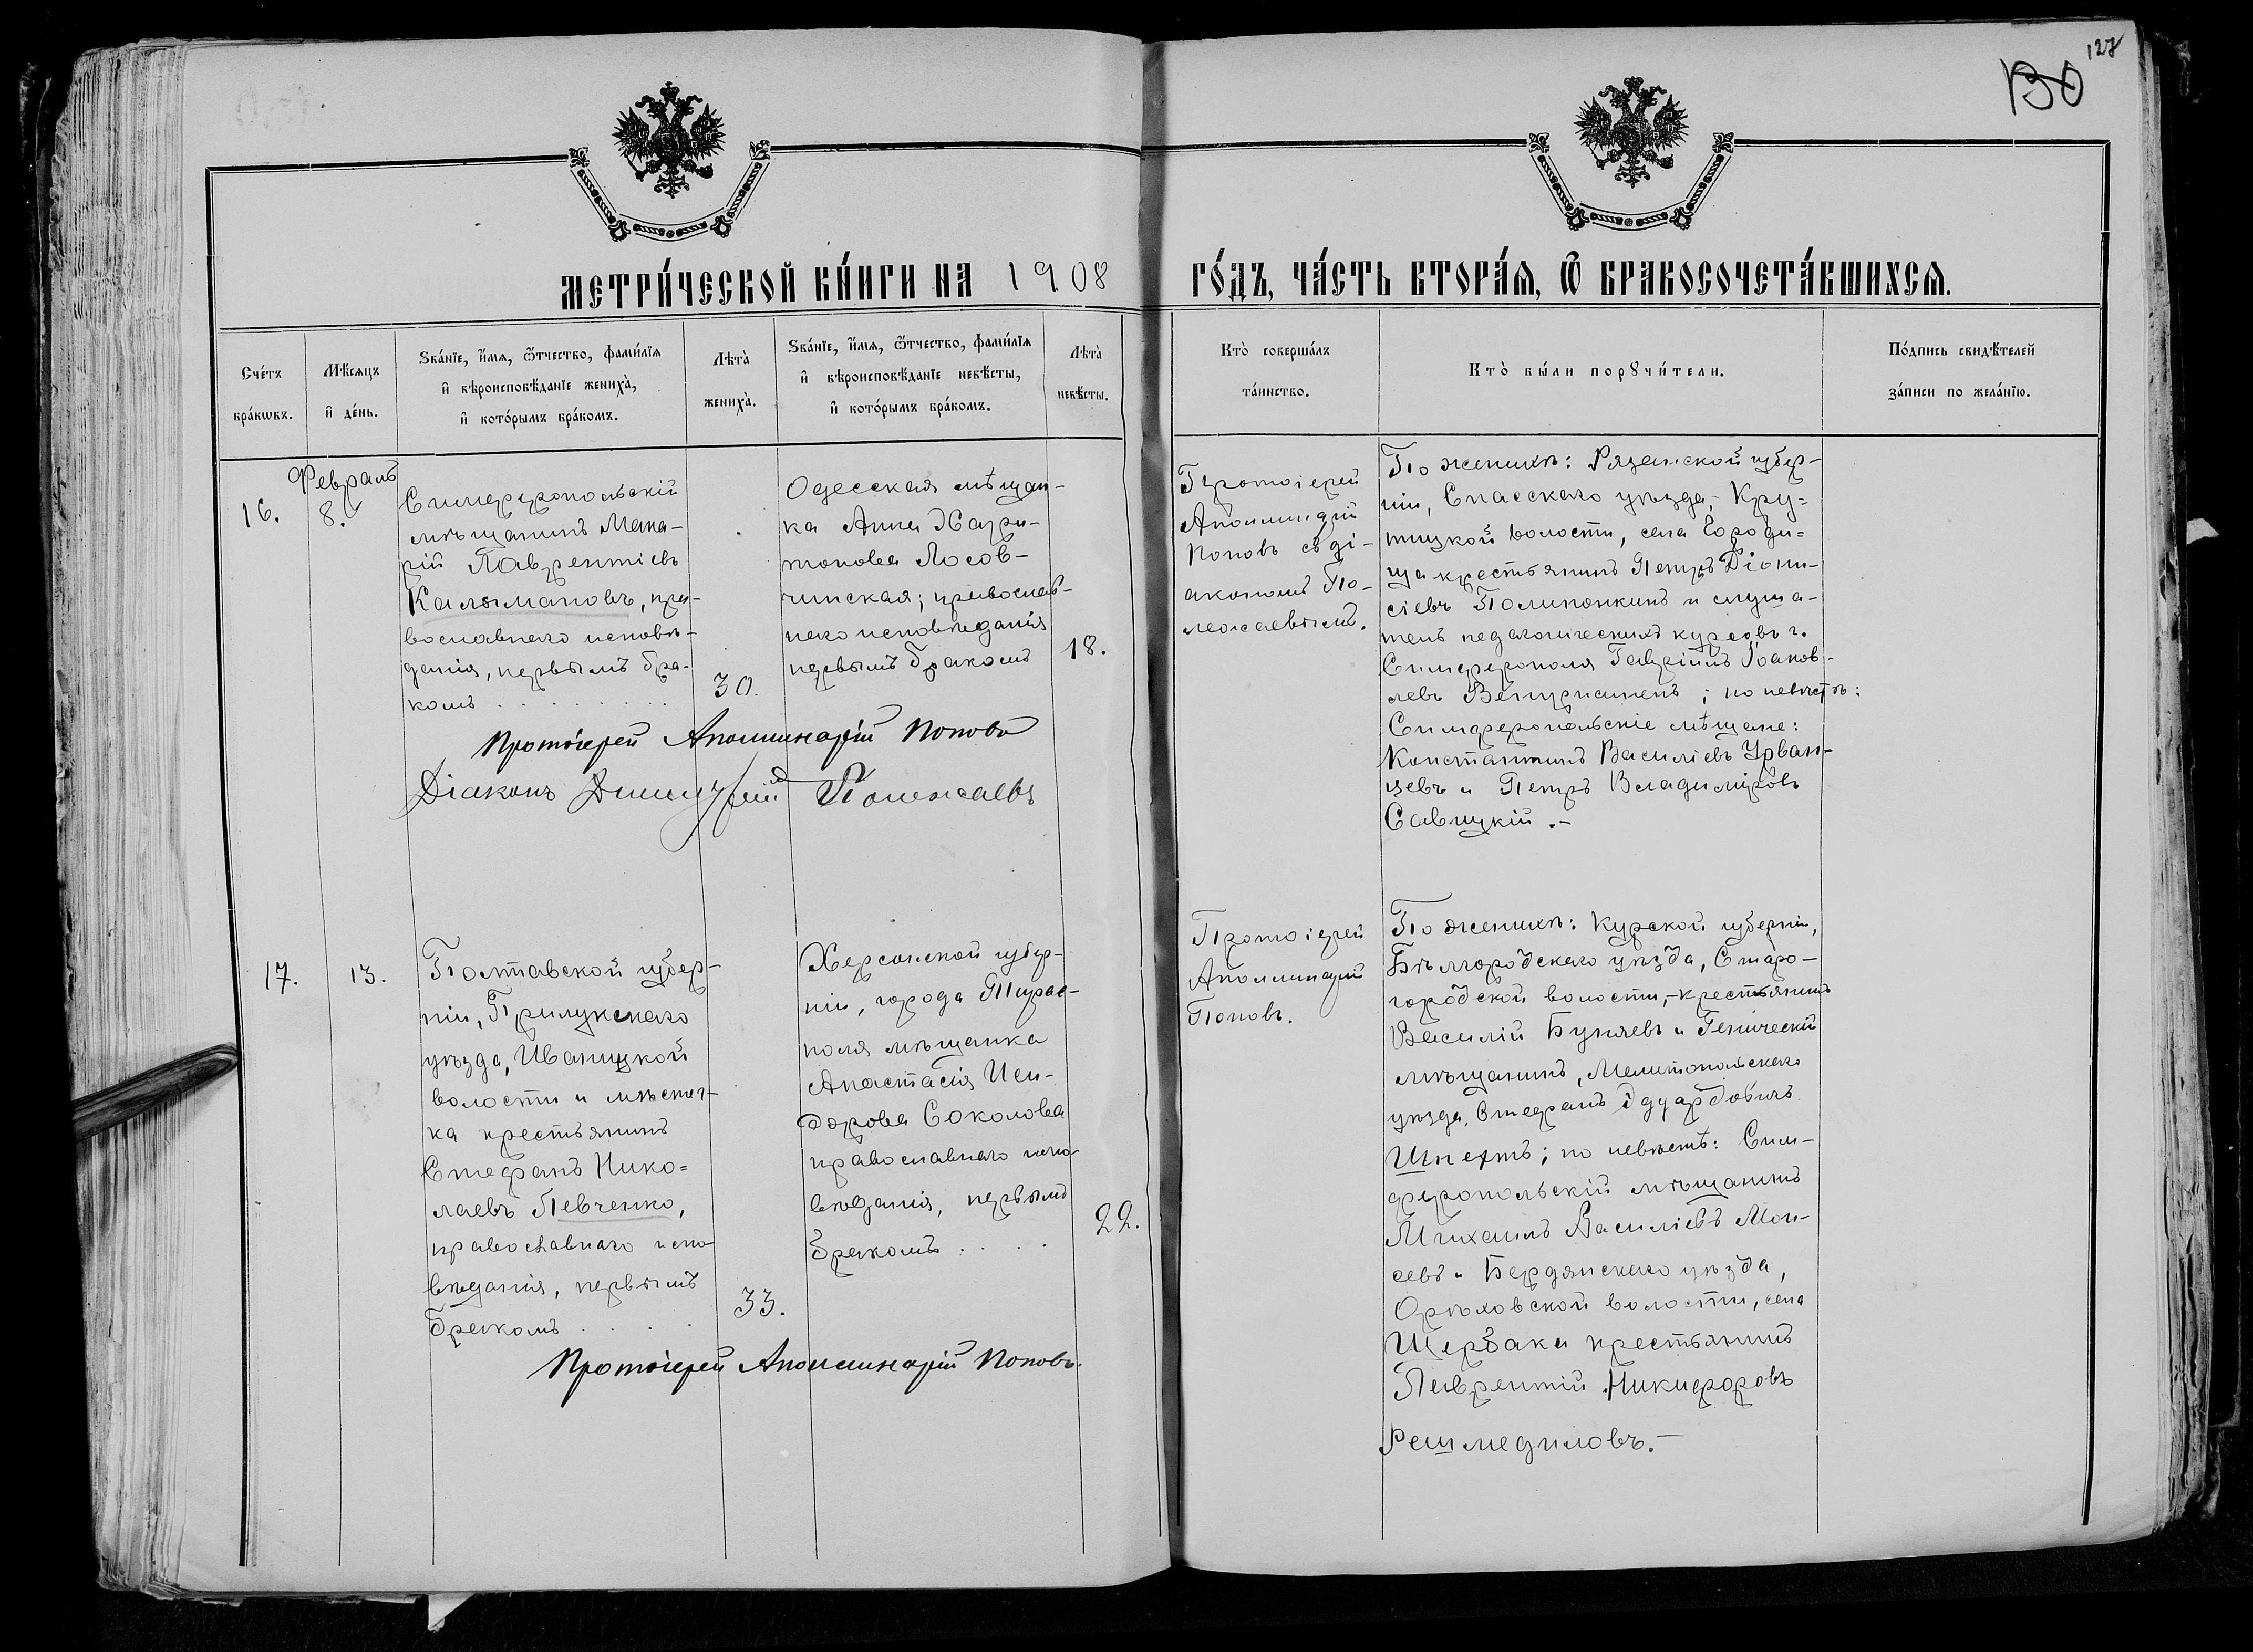 130
127
МЕТРИ́ЧЕСКОЙ КНИ́ГИ НА 1908 ГО́ДЪ, ЧА́СТЬ ВТОРА́Ѧ, Ѿ БРАКОСОЧЕТА́ВШИХСѦ.
Сче́тъ
бра́кωвъ.
Мѣ́сѧцъ
и҆ де́нь.
Ѕва́нїе, и҆́мѧ, ѿ́тчество, фами́лїѧ
и҆ вѣроисповѣ́данїе жениха̀,
и҆ кото́рымъ бра́комъ.
Лѣта̀
жениха̀.
Ѕва́нїе, и҆́мѧ, ѿ́тчество, фами́лїѧ
и҆ вѣроисповѣ́данїе невѣ́сты,
и҆ кото́рымъ бра́комъ.
Лѣта̀
невѣ́сты.
Кто̀ соверша́лъ
та́инство.
Кто̀ бы́ли порꙋчи́тели.
По́дпись свидѣ́телей
за́писи по жела́нїю.
16.
Февраль
8.
Симферопольскій
мѣщанинъ Мака-
рій Лаврентіевъ
Калымановъ, пра-
вославнаго исповѣ-
данія, первымъ бра-
комъ . . . . . . . . .
30.
Одесская мѣщан-
ка Анна Хари-
тонова Лосов-
чинская; православ-
наго исповѣданія
первымъ бракомъ
18.
Протоіерей Аполлинарій Поповъ
Діаконъ Димитрій Полежаевъ
Протоіерей
Аполлинарій
Поповъ съ ді-
акономъ По-
лежаевымъ.
По женихѣ: Рязанской губер-
ніи, Спасскаго уѣзда, Кру=
тицкой волости, села Городи=
ща крестьянинъ Петръ Діони-
сіевъ и слуша-
тель педагогическихъ курсовъ г.
Симферополя Гавріилъ Іоаков-
левъ ; по невѣстѣ:
Симферопольскіе мѣщане:
Константинъ Василіевъ Урван-
цевъ и Петръ Владиміровъ
Савицкій .-
17.
13.
Полтавской губер-
ніи, Прилукскаго
уѣзда, Иваницкой
волости и мѣстеч-
ка крестьянинъ
Стефанъ Нико=
лаевъ Левченко,
православнаго испо-
вѣданія, первымъ
бракомъ . . . .
33.
Херсонской губер-
ніи, города Тирас-
поля мѣщанка
Анастасія Иси-
дорова Соколова
православнаго испо-
вѣданія, первымъ
бракомъ . . . .
22.
Протоіерей Аполлинарій Поповъ.
Протоіерей
Аполлинарій
Поповъ.
По женихѣ: Курской губерніи,
Бѣлгородскаго уѣзда, Старо-
городской волости,-крестьянинъ
Василій Буняевъ и Геническій
мѣщанинъ, Мелитопольскаго
уѣзда, Стефанъ Эдуардовичъ
Шпехтъ; по невѣстѣ: Сим-
феропольскій мѣщанинъ
Михаилъ Василіевъ Мои-
сеевъ и Бердянскаго уѣзда,
Орѣховской волости, села
Щербаки крестьянинъ
Лаврентій Никифоровъ
Решмедиловъ.-